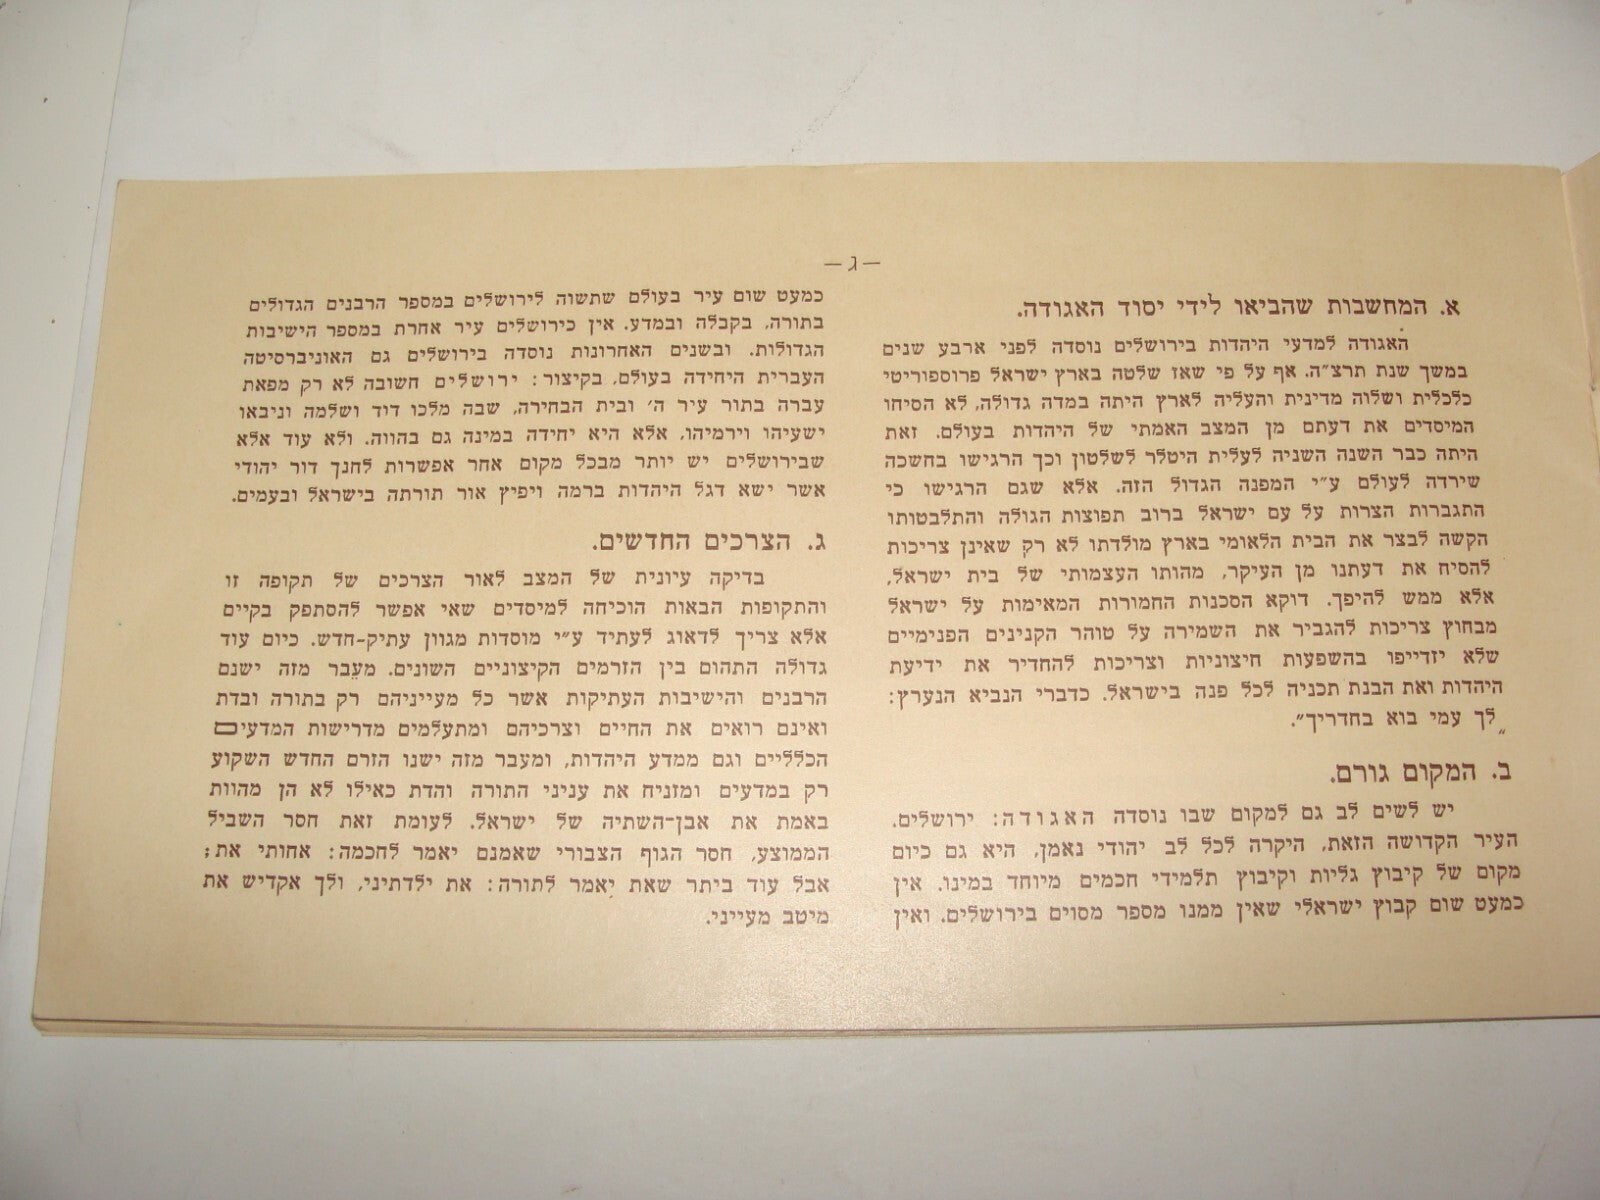 — ג —
א. המחשבות שהביאו לידי יסוד האגודה.
האגודה למדעי היהדות בירושלים נוסדה לפני ארבע שנים
במשך שנת תרצ״ה. אף על פי שאז שלטה בארץ ישראל פרוספוריטי
כלכלית ושלוה מדינית והעליה לארץ היתה במדה גדולה, לא הסיחו
המיסדים את דעתם מן המצב האמתי של היהדות בעולם. זאת
היתה כבר השנה השניה לעלית היטלר לשלטון וכך הרגישו בחשכה
שירדה לעולם ע״י המפנה הגדול הזה. אלא שגם הרגישו כי
התגברות הצרות על עם ישראל ברוב תפוצות הגולה והתלבטותו
הקשה לבצר את הבית הלאומי בארץ מולדתו לא רק שאינן צריכות
להסיח את דעתנו מן העיקר, מהותו העצמותי של בית ישראל,
אלא ממש להיפך. דוקא הסכנות החמורות המאימות על ישראל
מבחוץ צריכות להגביר את השמירה על טוהר הקנינים הפנימיים
שלא יזדייפו בהשפעות חיצוניות וצריכות להחדיר את ידיעת
היהדות ואת הבנת תכניה לכל פנה בישראל. כדברי הנביא הנערץ:
„לך עמי בוא בחדריך״.
ב. המקום גורם.
יש לשים לב גם למקום שבו נוסדה האגודה: ירושלים.
העיר הקדושה הזאת, היקרה לכל לב יהודי נאמן, היא גם כיום
מקום של קיבוץ גליות וקיבוץ תלמידי חכמים מיוחד במינו. אין
כמעט שום קבוץ ישראלי שאין ממנו מספר מסוים בירושלים. ואין
כמעט שום עיר בעולם שתשוה לירושלים במספר הרבנים הגדולים
בתורה, בקבלה ובמדע. אין כירושלים עיר אחרת במספר הישיבות
הגדולות. ובשנים האחרונות נוסדה בירושלים גם האוניברסיטה
העברית היחידה בעולם. בקיצור: ירושלים חשובה לא רק מפאת
עברה בתור עיר ה׳ ובית הבחירה, שבה מלכו דוד ושלמה וניבאו
ישעיהו וירמיהו, אלא היא יחידה במינה גם בהווה. ולא עוד אלא
שבירושלים יש יותר מבכל מקום אחר אפשרות לחנך דור יהודי
אשר ישא דגל היהדות ברמה ויפיץ אור תורתה בישראל ובעמים.
ג. הצרכים החדשים.
בדיקה עיונית של המצב לאור הצרכים של תקופה זו
והתקופות הבאות הוכיחה למיסדים שאי אפשר להסתפק בקיים
אלא צריך לדאוג לעתיד ע״י מוסדות מגוון עתיק-חדש. כיום עוד
גדולה התהום בין הזרמים הקיצוניים השונים. מעבר מזה ישנם
הרבנים והישיבות העתיקות אשר כל מעייניהם רק בתורה ובדת
ואינם רואים את החיים וצרכיהם ומתעלמים מדרישות המדעים
הכלליים וגם ממדע היהדות, ומעבר מזה ישנו הזרם החדש השקוע
רק במדעים ומזניח את עניני התורה והדת כאילו לא הן מהוות
באמת את אבן-השתיה של ישראל. לעומת זאת חסר השביל
הממוצע, חסר הגוף הצבורי שאמנם יאמר לחכמה: אחותי את;
אבל עוד ביתר שאת יאמר לתורה: את ילדתיני, ולך אקדיש את
מיטב מעייני.